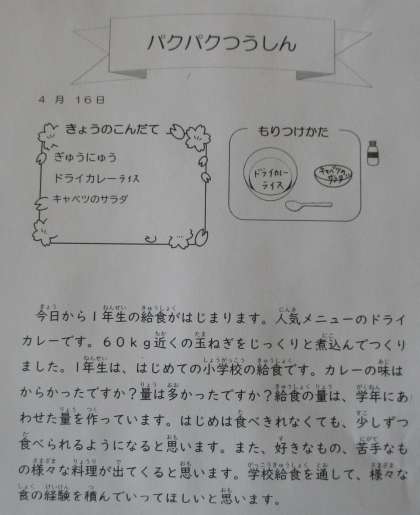 パクパクつうしん
4 月 16日
きょうのこんだて
ぎゅうにゅう
ドライカレーライス
キャベツのサラダ
もりつけかた
ドライカレー
ライス
キャベツの
サラダ
今日から1年生の給食がはじまります。人気メニューのドライ
カレーです。60kg近くの玉ねぎをじっくりと煮込んでつくり
ました。1年生は、はじめての小学校の給食です。カレーの味は
からかったですか？量は多かったですか？給食の量は、学年にあ
わせた量を作っています。はじめは食べきれなくても、少しずつ
食べられるようになると思います。また、好きなもの、苦手なも
の様々な料理が出てくると思います。学校給食を通して、様々な
食の経験を積んでいってほしいと思います。